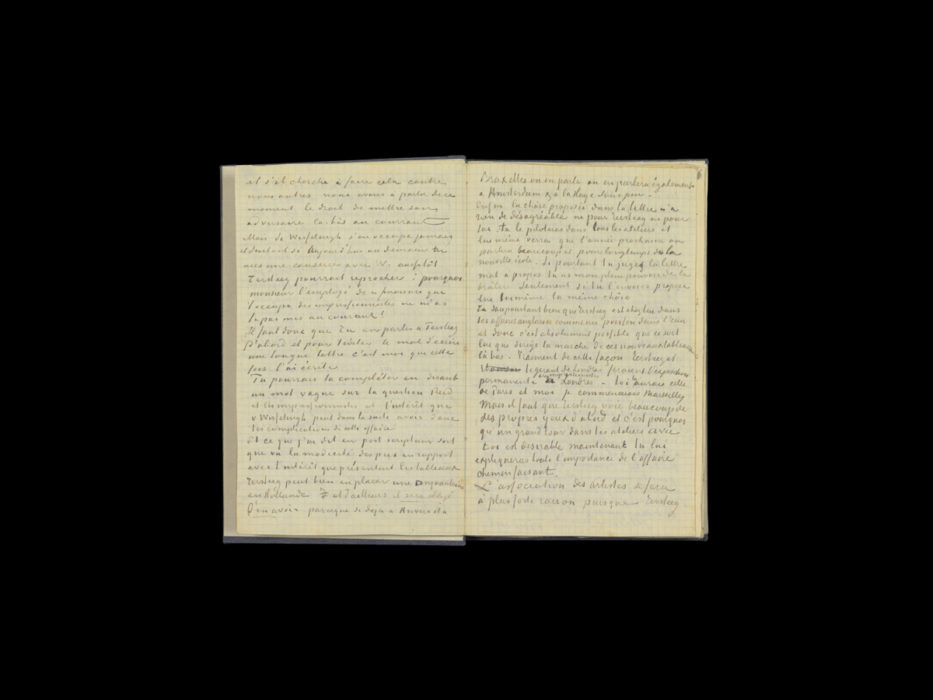 et s'est cherché à faire cela contre
nous autres nous avons à partir de ce
moment le droit de mettre son
adversaire là bas au courant
Mais de Wisselingh s'en occupe jamais
et surtout si aujourd'hui ou demain tu
avec W. aussitôt
Tersteeg pourrait reprocher : pourquoi
monsieur l'employé de
t'occupes des impressionnistes ne m'as
tu pas mis au courant!
Il faut donc que Tu en parles à Tersteeg
d'abord et pour t'éviter le mal d'écrire
une longue lettre c'est moi que cette
fois l'ai écrite
Tu pourrais la compléter en disant
un mot vague sur la question Reid
et les impressionnistes et l'intérêt que
v Wisselingh peut dans la suite avoir dans
les complications de cette affaire
Et ce que j'en dit en post scriptum soit
que vu la modicité des prix en rapport
avec l'intérêt que présentent les tableaux
Tersteeg peut bien en placer une cinquantaine
en Hollande & d'ailleurs il sera obligé
d'en avoir parceque si déjà à Anvers et à
Bruxelles on en parle on en parlera également
à Amsterdam & à la Haye sous peu.
Enfin la chose proposée dans la lettre n'a
rien de désagréable ni pour Tersteeg ni pour
toi tu le piloteras dans tous les ateliers et
lui même verra que l'année prochaine on
parlera beaucoup et pour longtemps de la
nouvelle école. Si pourtant tu juges la lettre
mal à propos tu as mon plein pouvoir de la
brûler seulement si tu l'envoies propose
lui toi même la même chose
Tu sais pourtant bien que Tersteeg est chez lui dans
les affaires anglaises comme un poisson dans l'eau
et donc c'est absolument possible que ce soit
lui que dirige la marche de ces nouveaux tableaux
là bas. Tiament de cette façon Tersteeg et
le gérant de Londres feraient l'exposition
impressionniste
permanente de Londres - toi aurais celle
de Paris et moi je commencerais Marseille
Mais il faut que Tersteeg voie beaucoup de
ses propres yeux d'abord et c'est pourquoi
qu'un grand tour dans les ateliers avec
toi est désirable maintenant tu lui
expliqueras toute l'importance de l'affaire
chemin faisant.
L'association des artistes se fera
à plus forte raison puisque Tersteeg